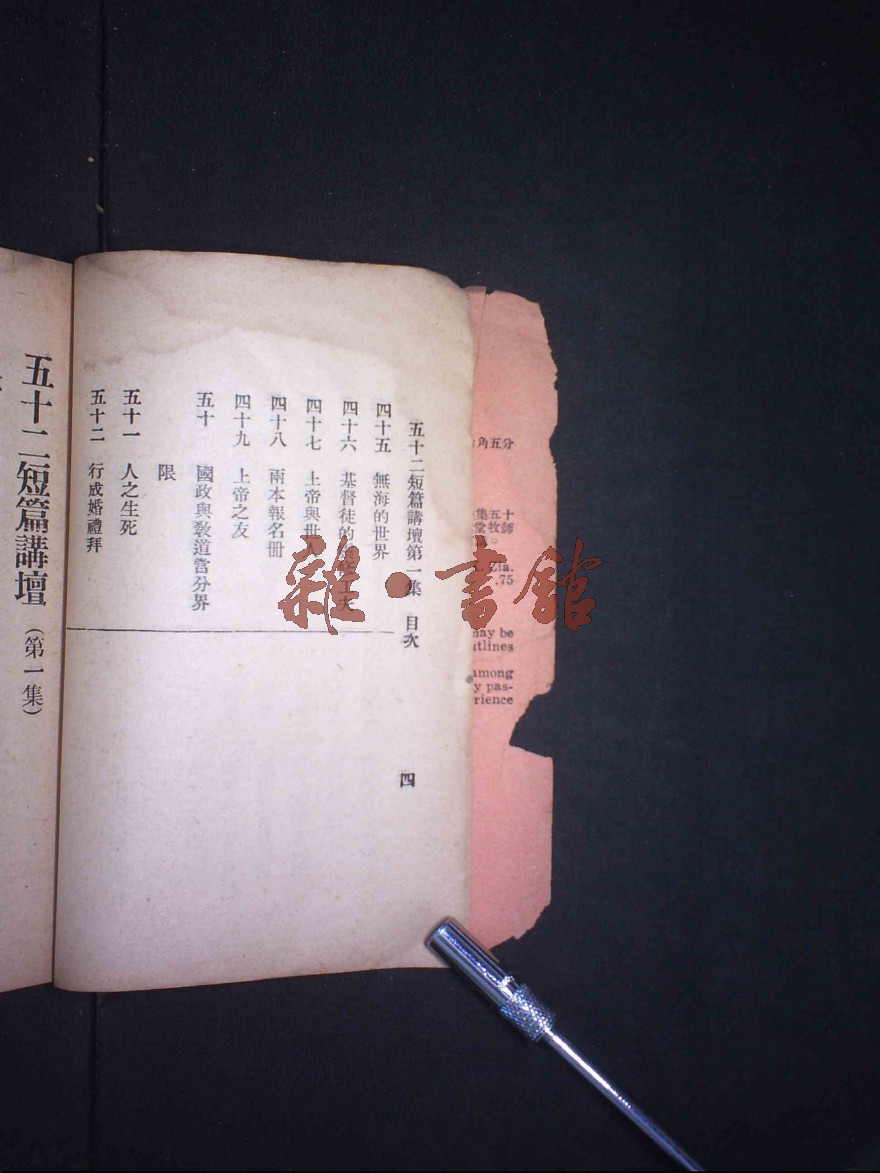 五十二短篇講壇第一集 目次
四
四十五 無海的世界
四十六 基督徒的工夫
四十七 上帝與世人
四十八 兩本報名冊
四十九 上帝之友
五十 國政與敎道當分界
限
五十一 人之生死
五十二 行成婚禮拜
五十二短篇講壇(第一集)
角五分
集五十
堂牧師
Zia.
.75
may be
utlines
among
y pas-
rience
雜·書館